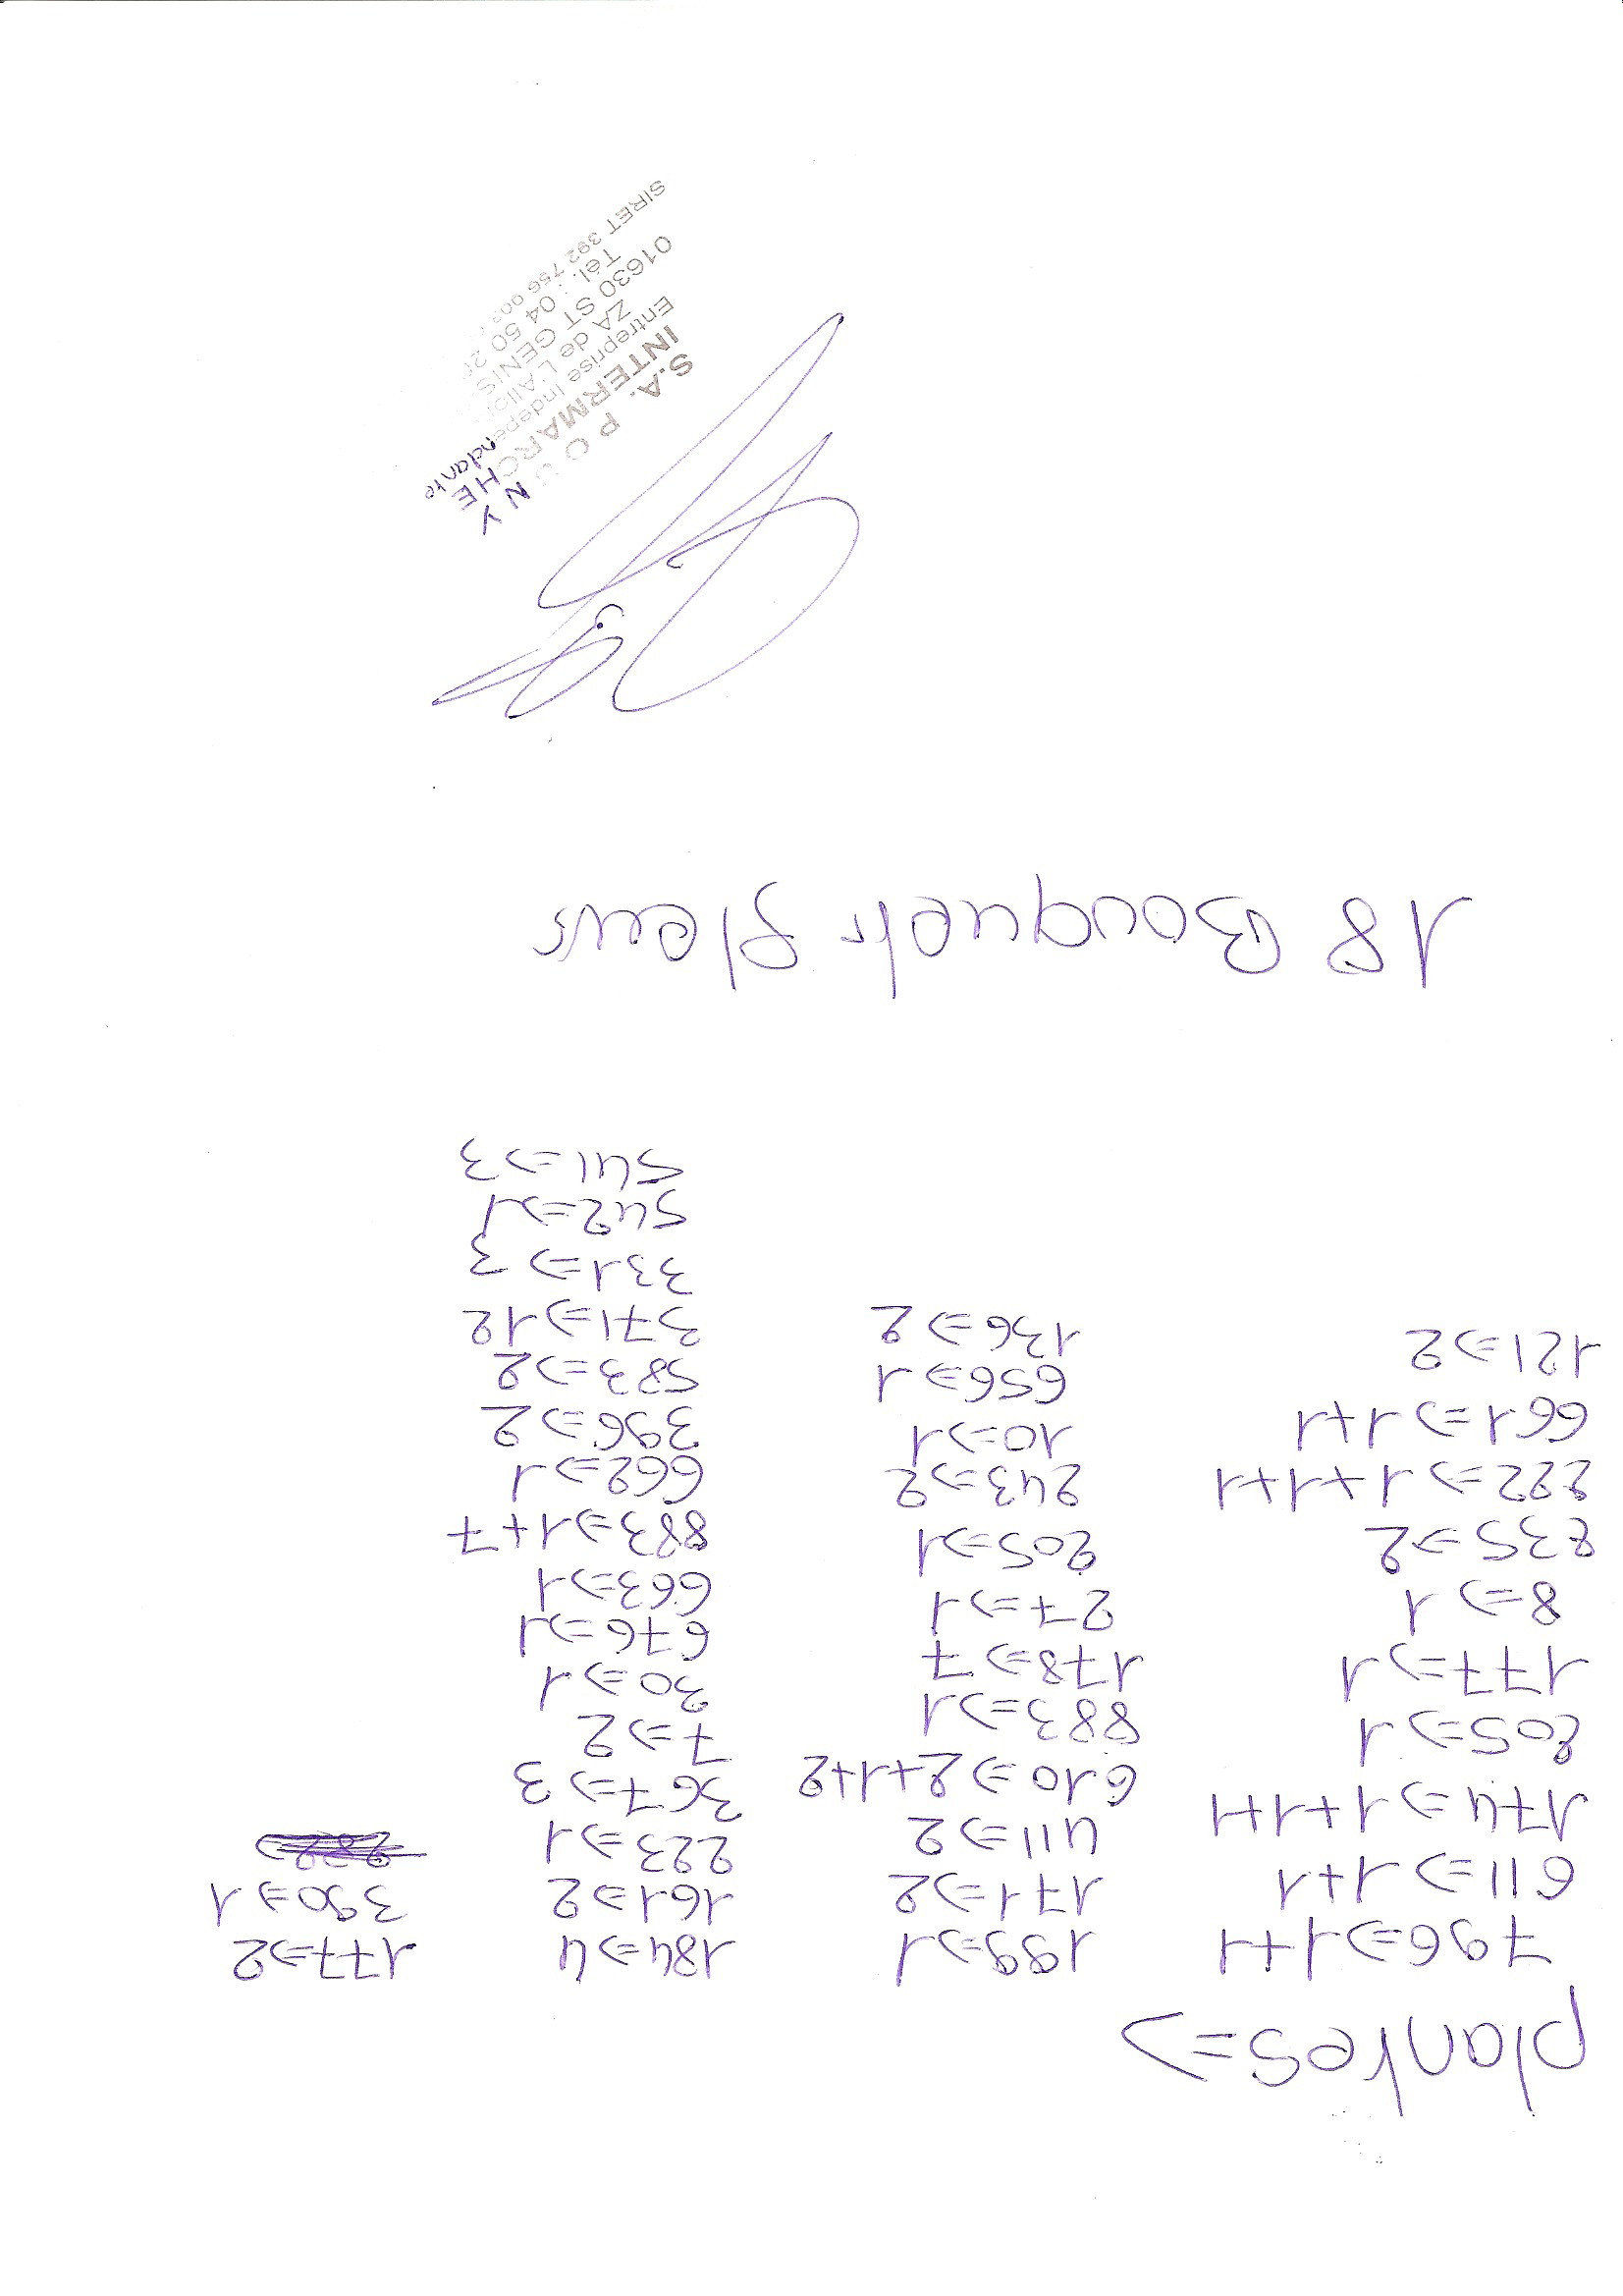 plantes =>
796=>1+1
611=>1+1
174=>1+1+1
205=>1
177=>1
8=>1
235=>2
222=>1+1+1
661=>1+1
121=>2
199=>1
171=>2
411=>2
610=>2+1+2
883=>1
178=>7
27=>1
205=>1
243=>2
10=>1
656=>1
136=>2
184=>4
161=>2
223=>1
367=>3
7=>2
30=>1
676=>1
663=>1
883=>1+7
662=>1
396=>2
583=>2
371=>12
331=>3
542=>1
541=>3
177=>2
390=>1
18 Bouquets fleurs
S.A. POUNY
INTERMARCHE
Entreprise Indépendante
ZA de L'Allon
01630 ST GENIS
Tél. : 04 50 20
SIRET 392 756 003